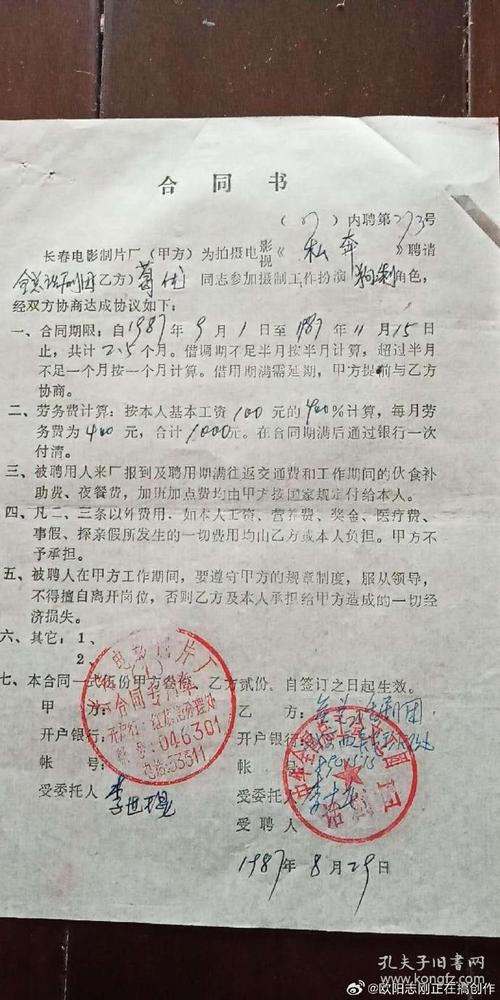 合同书
(87)内聘第273号
长春电影制片厂(甲方)为拍摄电影视《私奔》聘请
全总话剧团乙方)葛优同志参加摄制工作扮演角色，
经双方协商达成协议如下：
一、合同期限：自1987年9月1日至1987年11月15日
止，共计2.5个月。借调期不足半月按半月计算，超过半月
不足一个月按一个月计算。借用期满需延期，甲方提前与乙方
协商。
二、劳务费计算：按本人基本工资100元的400%计算，每月劳
务费为400元，合计1000元。在合同期满后通过银行一次
付清。
三、被聘用人来厂报到及聘用期满往返交通费和工作期间的伙食补
助费、夜餐费，加班加点费均由甲方按国家规定付给本人。
四、凡二、三条以外费用．如本人工资、营养费、奖金、医疗费、
事假、探亲假所发生的一切费用均由乙方或本人负担。甲方不
予承担。
五、被聘人在甲方工作期间，要遵守甲方的规章制度，服从领导，
不得擅自离开岗位，否则乙方及本人承担给甲方造成的一切经
济损失。
六、其它：1、
2、
七、本合同一式伍份甲方叁份，乙方贰份．自签订之日起生效。
甲方：
乙方：全总话剧团
开户银行：
开户银行：
帐号：
帐号：
受委托人
受委托人
受聘人
1987年8月29日
长春电影制片厂
合同专用章
046301
电话53511
话剧团
孔夫子旧书网
kongfz.com
@欧阳志刚正在搞创作